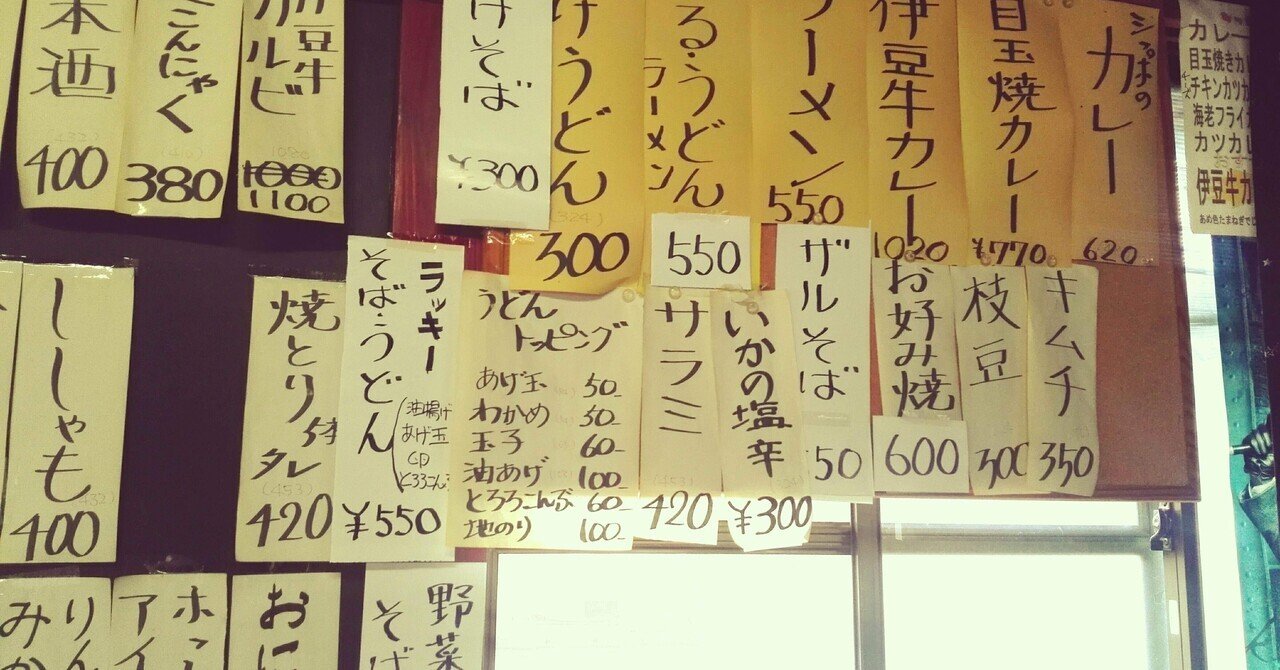 本酒
400
こんにゃく
380
伊豆牛
カルビ
1000
1100
けそば
¥300
けうどん
300
る・うどん
ラーメン
550
ラーメン
550
伊豆牛カレー
1020
目玉焼カレー
¥770
シッポの
カレー
620
カレー
目玉焼きカ
チキンカツカ
海老フライ
カツカレ
伊豆牛カ
あめ色たまねぎで
ししゃも
400
焼とり
5本
タレ
420
ラッキー
そば・うどん
油揚げ
あげ玉
とろろこんぶ
¥550
うどん
トッピング
あげ玉 50-
わかめ 50-
玉子 60-
油あげ 100-
とろろこんぶ 60-
地のり 100-
サラミ
420
いかの塩辛
¥300
ザルそば
50
お好み焼
600
枝豆
300
キムチ
350
りん
みか
ホッ
アイ
おに
野菜
そば